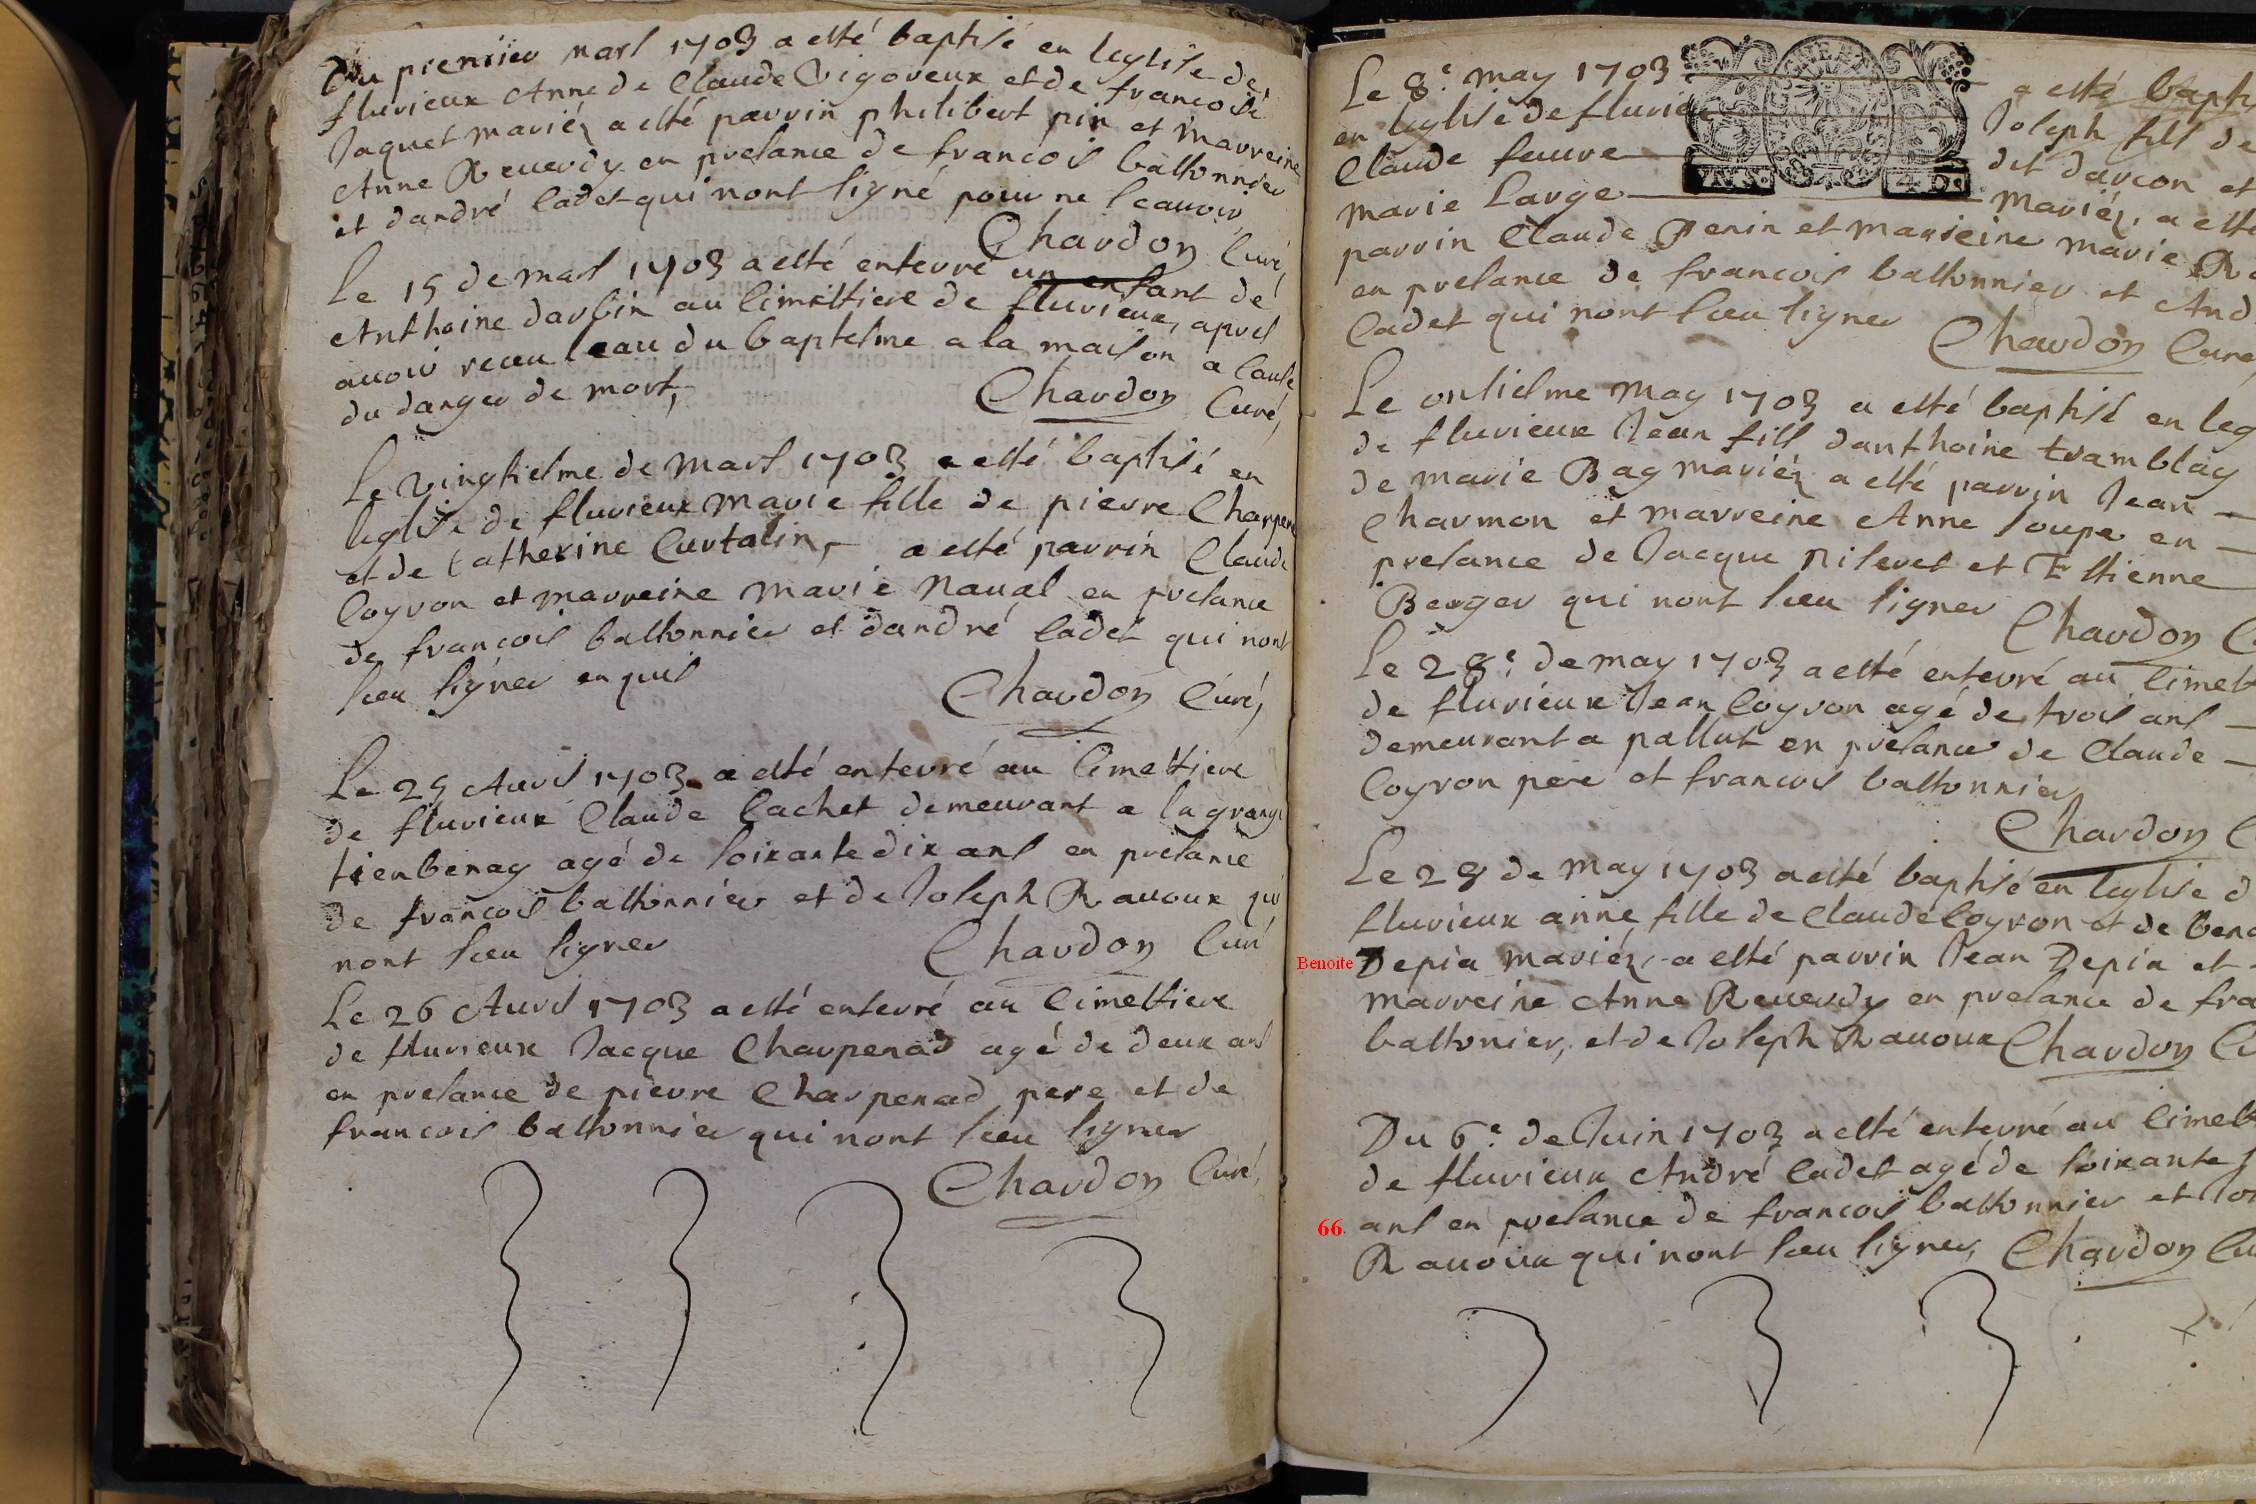 Du premier mars 1703 a esté baptisé en leglise de
fluvieux Anne de Claude Vigoreux et de francoise
Jaquet mariéz a esté parrin philibert pin et marreine
Anne Reuerdy en presance de francois bastonnier
et dandré Cadet qui nont signé pour ne scauoir
Chardon Curé,
Le 15 de mars 1703 a esté enterré un enfant de
Anthoine darbin au cimestiere de fluvieux, apres
auoir receu leau du baptesme a la maison a cause
du danger de mort,
Chardon Curé,
Le vingtiesme de mars 1703 a esté baptisé en
leglise de fluvieux marie fille de pierre Charpena
et de Catherine Curtalin, a esté parrin Claude
Coyron et marreine marie Naual en presance
de francois bastonnier et dandré Cadet qui nont
sceu signer enquis
Chardon Curé,
Le 25 Auril 1703 a esté enterré au Cimestiere
de fluvieux Claude Cachet demeurant a la grange
tienbenay agé de soixante dix ans en presance
de francois bastonnier et de Joseph Rauoux qui
nont sceu signer
Chardon Curé
Le 26 Auril 1703 a esté enterré au Cimestiere
de fluvieux Jacque Charpenad agé de deux ans
en presance de pierre Charpenad pere et de
francois bastonnier qui nont sceu signer
Chardon Curé,
Le 8e may 1703 a esté baptis
en leglise de fluvieu Joseph fils de
Claude feuure dit darcon et
marie Large mariéz, a esté
parrin Claude Penin et marreine marie Ra
en presance de francois bastonnier et And
Cadet qui nont sceu signer
Chardon Curé
Le onsiesme may 1703 a esté baptisé en leg
de fluvieux Jean fils danthoine tramblay
de marie Bag mariéz a esté parrin Jean
Charmon et marreine Anne loupe en
presance de Jacque Pileuet et Estienne
Berger qui nont sceu signer
Chardon C
Le 28e de may 1703 a esté enterré au Cimest
de fluvieux Jean Coyron agé de trois ans
demeurant a pallut en presance de Claude
Coyron pere et francois bastonnier
Chardon C
Le 28 de may 1703 a esté baptisé en leglise d
fluvieux anne fille de Claude Coyron et de Beno
Benoite Depia mariéz, a esté parrin Jean Depia et
marreine Anne Reuerdy en presance de fra
bastonier, et de Joseph Rauoux Chardon Cu
Du 6e de Juin 1703 a esté enterré au Cimest
de fluvieux André Cadet agé de soixante s
66 ans en presance de francois bastonnier et Jos
Rauoux qui nont sceu signer, Chardon Cu